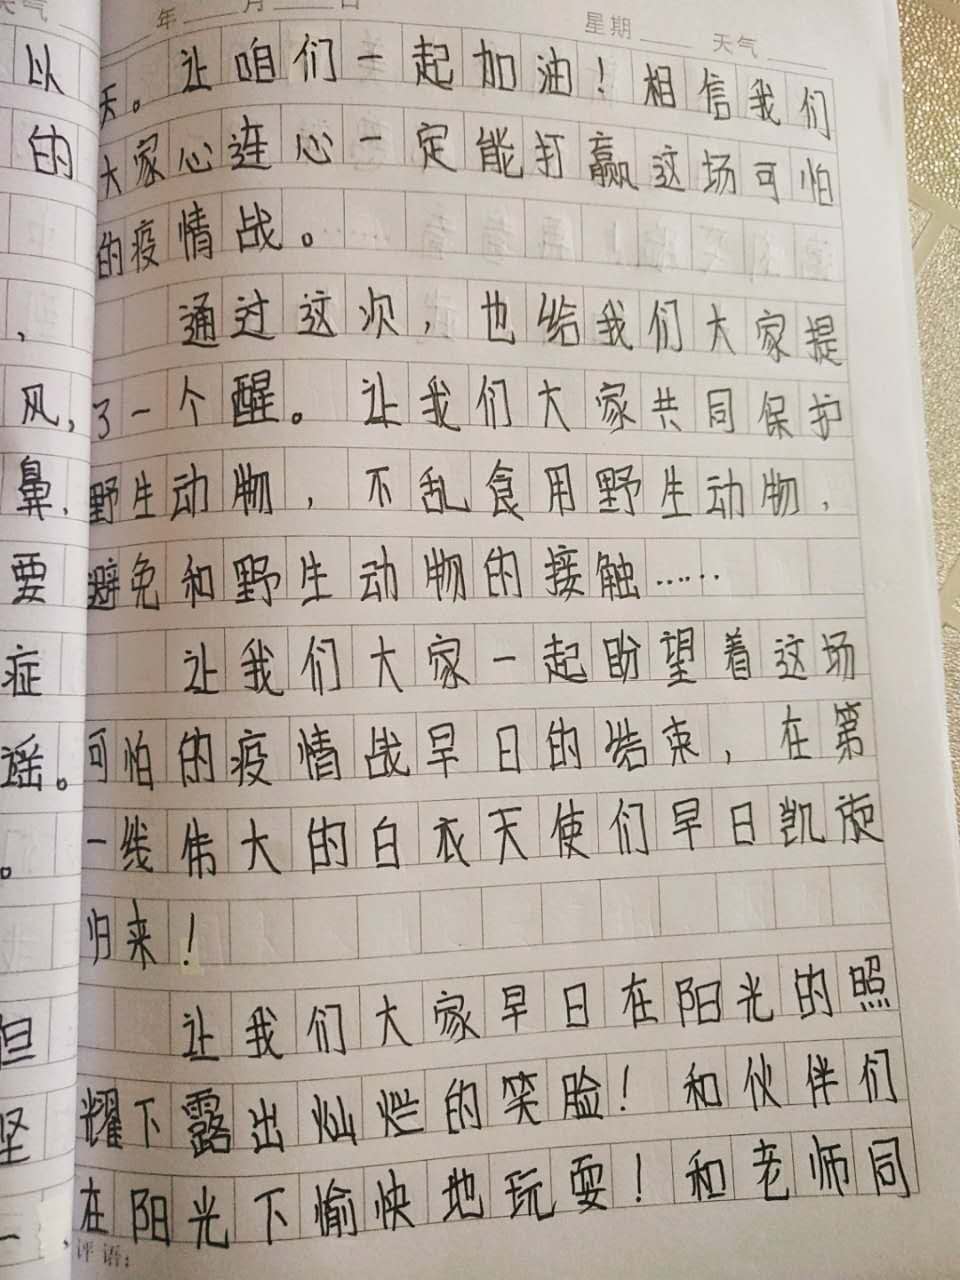 天气 年 月 日 星期 天气
以 天。让咱们一起加油！相信我们
的 大家心连心一定能打赢这场可怕
的疫情战。
， 通过这次，也给我们大家提
风， 了一个醒。让我们大家共同保护
鼻， 野生动物，不乱食用野生动物，
要 避免和野生动物的接触……
症 让我们大家一起盼望着这场
谣。 可怕的疫情战早日的结束，在第
。 一线伟大的白衣天使们早日凯旋
归来！
但 让我们大家早日在阳光的照
坚 耀下露出灿烂的笑脸！和伙伴们
一， 在阳光下愉快地玩耍！和老师同
评语：